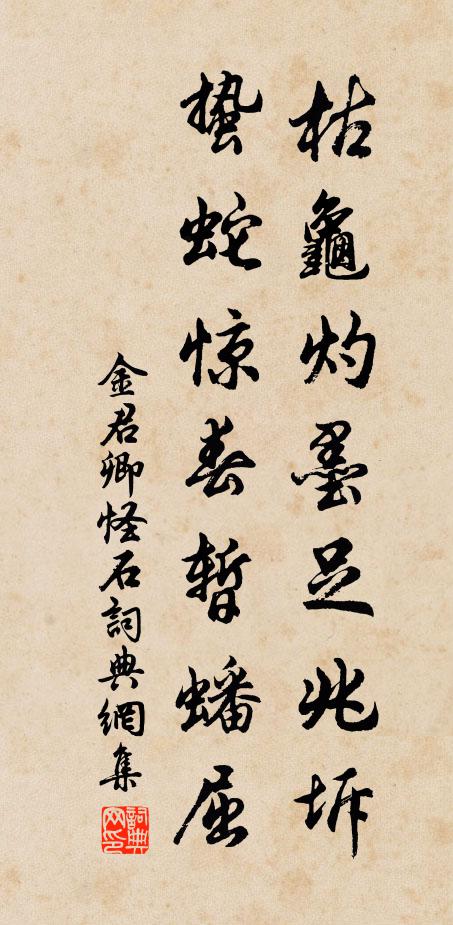 枯龜灼墨足兆坼
蟄蛇惊春暫蟠屈
金君卿怪石詞典網集
詞典网印